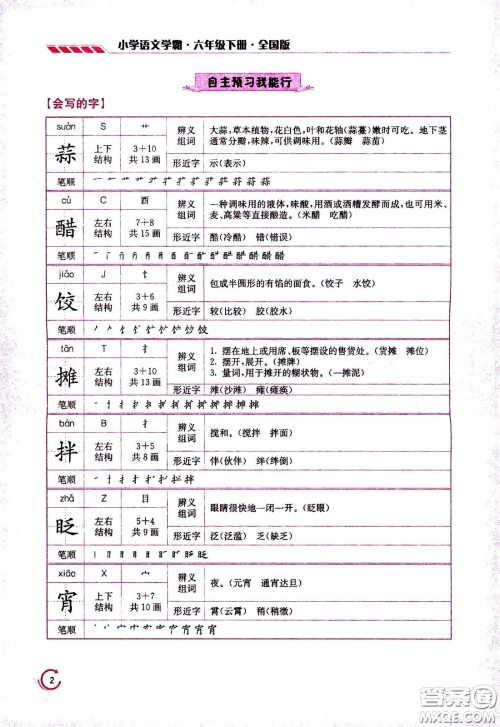 小学语文学霸·六年级下册·全国版
自主预习我能行
【会写的字】
suàn S 艹 辨义组词 大蒜,草本植物,花白色,叶和花轴(蒜薹)嫩时可吃。地下茎
蒜 上下结构 3+10 共13画 通常分瓣,味辣,可供调味用。(蒜瓣 蒜苗)
形近字 示(表示)
笔顺
cù C 酉 辨义组词 一种调味用的液体,味酸,用酒或酒糟发酵而成,也可用米、
醋 左右结构 7+8 共15画 麦、高粱等直接酿造。(米醋 吃醋)
形近字 酷(冷酷) 错(错误)
笔顺
jiǎo J 饣 辨义组词 包成半圆形的有馅的面食。(饺子 水饺)
饺 左右结构 3+6 共9画
形近字 较(比较) 胶(胶水)
笔顺
tān T 扌 辨义组词 1. 摆在地上或用席、板等摆设的售货处。(货摊 摊位)
摊 左右结构 3+10 共13画 2. 摆开,展开。(摊牌)
3. 量词,用于摊开的糊状物。(一摊泥)
形近字 滩(沙滩) 瘫(瘫痪)
笔顺
bàn B 扌 辨义组词 搅和。(搅拌 拌面)
拌 左右结构 3+5 共8画
形近字 伴(伙伴) 绊(绊倒)
笔顺
zhǎ Z 目 辨义组词 眼睛很快地一闭一开。(眨眼)
眨 左右结构 5+4 共9画
形近字 泛(泛滥) 乏(缺乏)
笔顺
xiāo X 宀 辨义组词 夜。(元宵 通宵达旦)
宵 上下结构 3+7 共10画
形近字 霄(云霄) 稍(稍微)
笔顺
2
答案圈
MXQE.COM